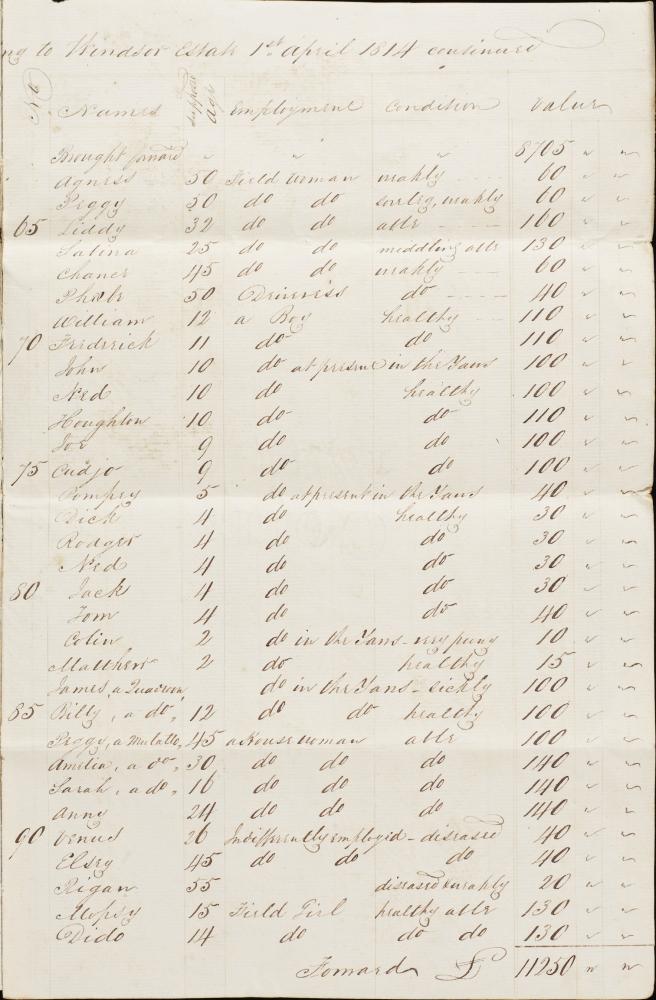 ng to Windsor Estate 1st April 1814 continued
No Names supposed Age Employment Condition Value
Brought forward " " " 8705 " "
Agness 50 Field Woman weakly 60 " "
Peggy 50 do do weakly 60 " "
65 Liddy 32 do do able 160 " "
Sabina 25 do do meddling able 130 " "
Chance 45 do do weakly 60 " "
Phebe 50 Driveress do 40 " "
William 12 a Boy healthy 110 " "
70 Frederick 11 do do 110 " "
John 10 do at present in the Yaws 100 " "
Ned 10 do healthy 100 " "
Houghton 10 do do 110 " "
Joe 9 do do 100 " "
75 Cudjo 9 do do 100 " "
Pompey 5 do at present in the Yaws 40 " "
Dick 4 do healthy 30 " "
Rodger 4 do do 30 " "
Ned 4 do do 30 " "
80 Jack 4 do do 30 " "
Tom 4 do do 40 " "
Colin 2 do in the Yaws - very puny 10 " "
Matthew 2 do healthy 15 " "
James, a Quadroon do in the Yaws - sickly 100 " "
85 Billy, a do, 12 do do healthy 100 " "
Peggy, a Mulatto, 45 a House woman able 100 " "
Amelia, a do, 30 do do do 140 " "
Sarah, a do, 16 do do do 140 " "
Anny 24 do do do 140 " "
90 Venus 26 Indifferently employed - diseased 40 " "
Elsey 45 do do do 40 " "
Rigan 55 diseased & weakly 20 " "
Mopsy 15 Field Girl healthy able 130 " "
Dido 14 do do do 130 " "
Forward £ 11250 " "